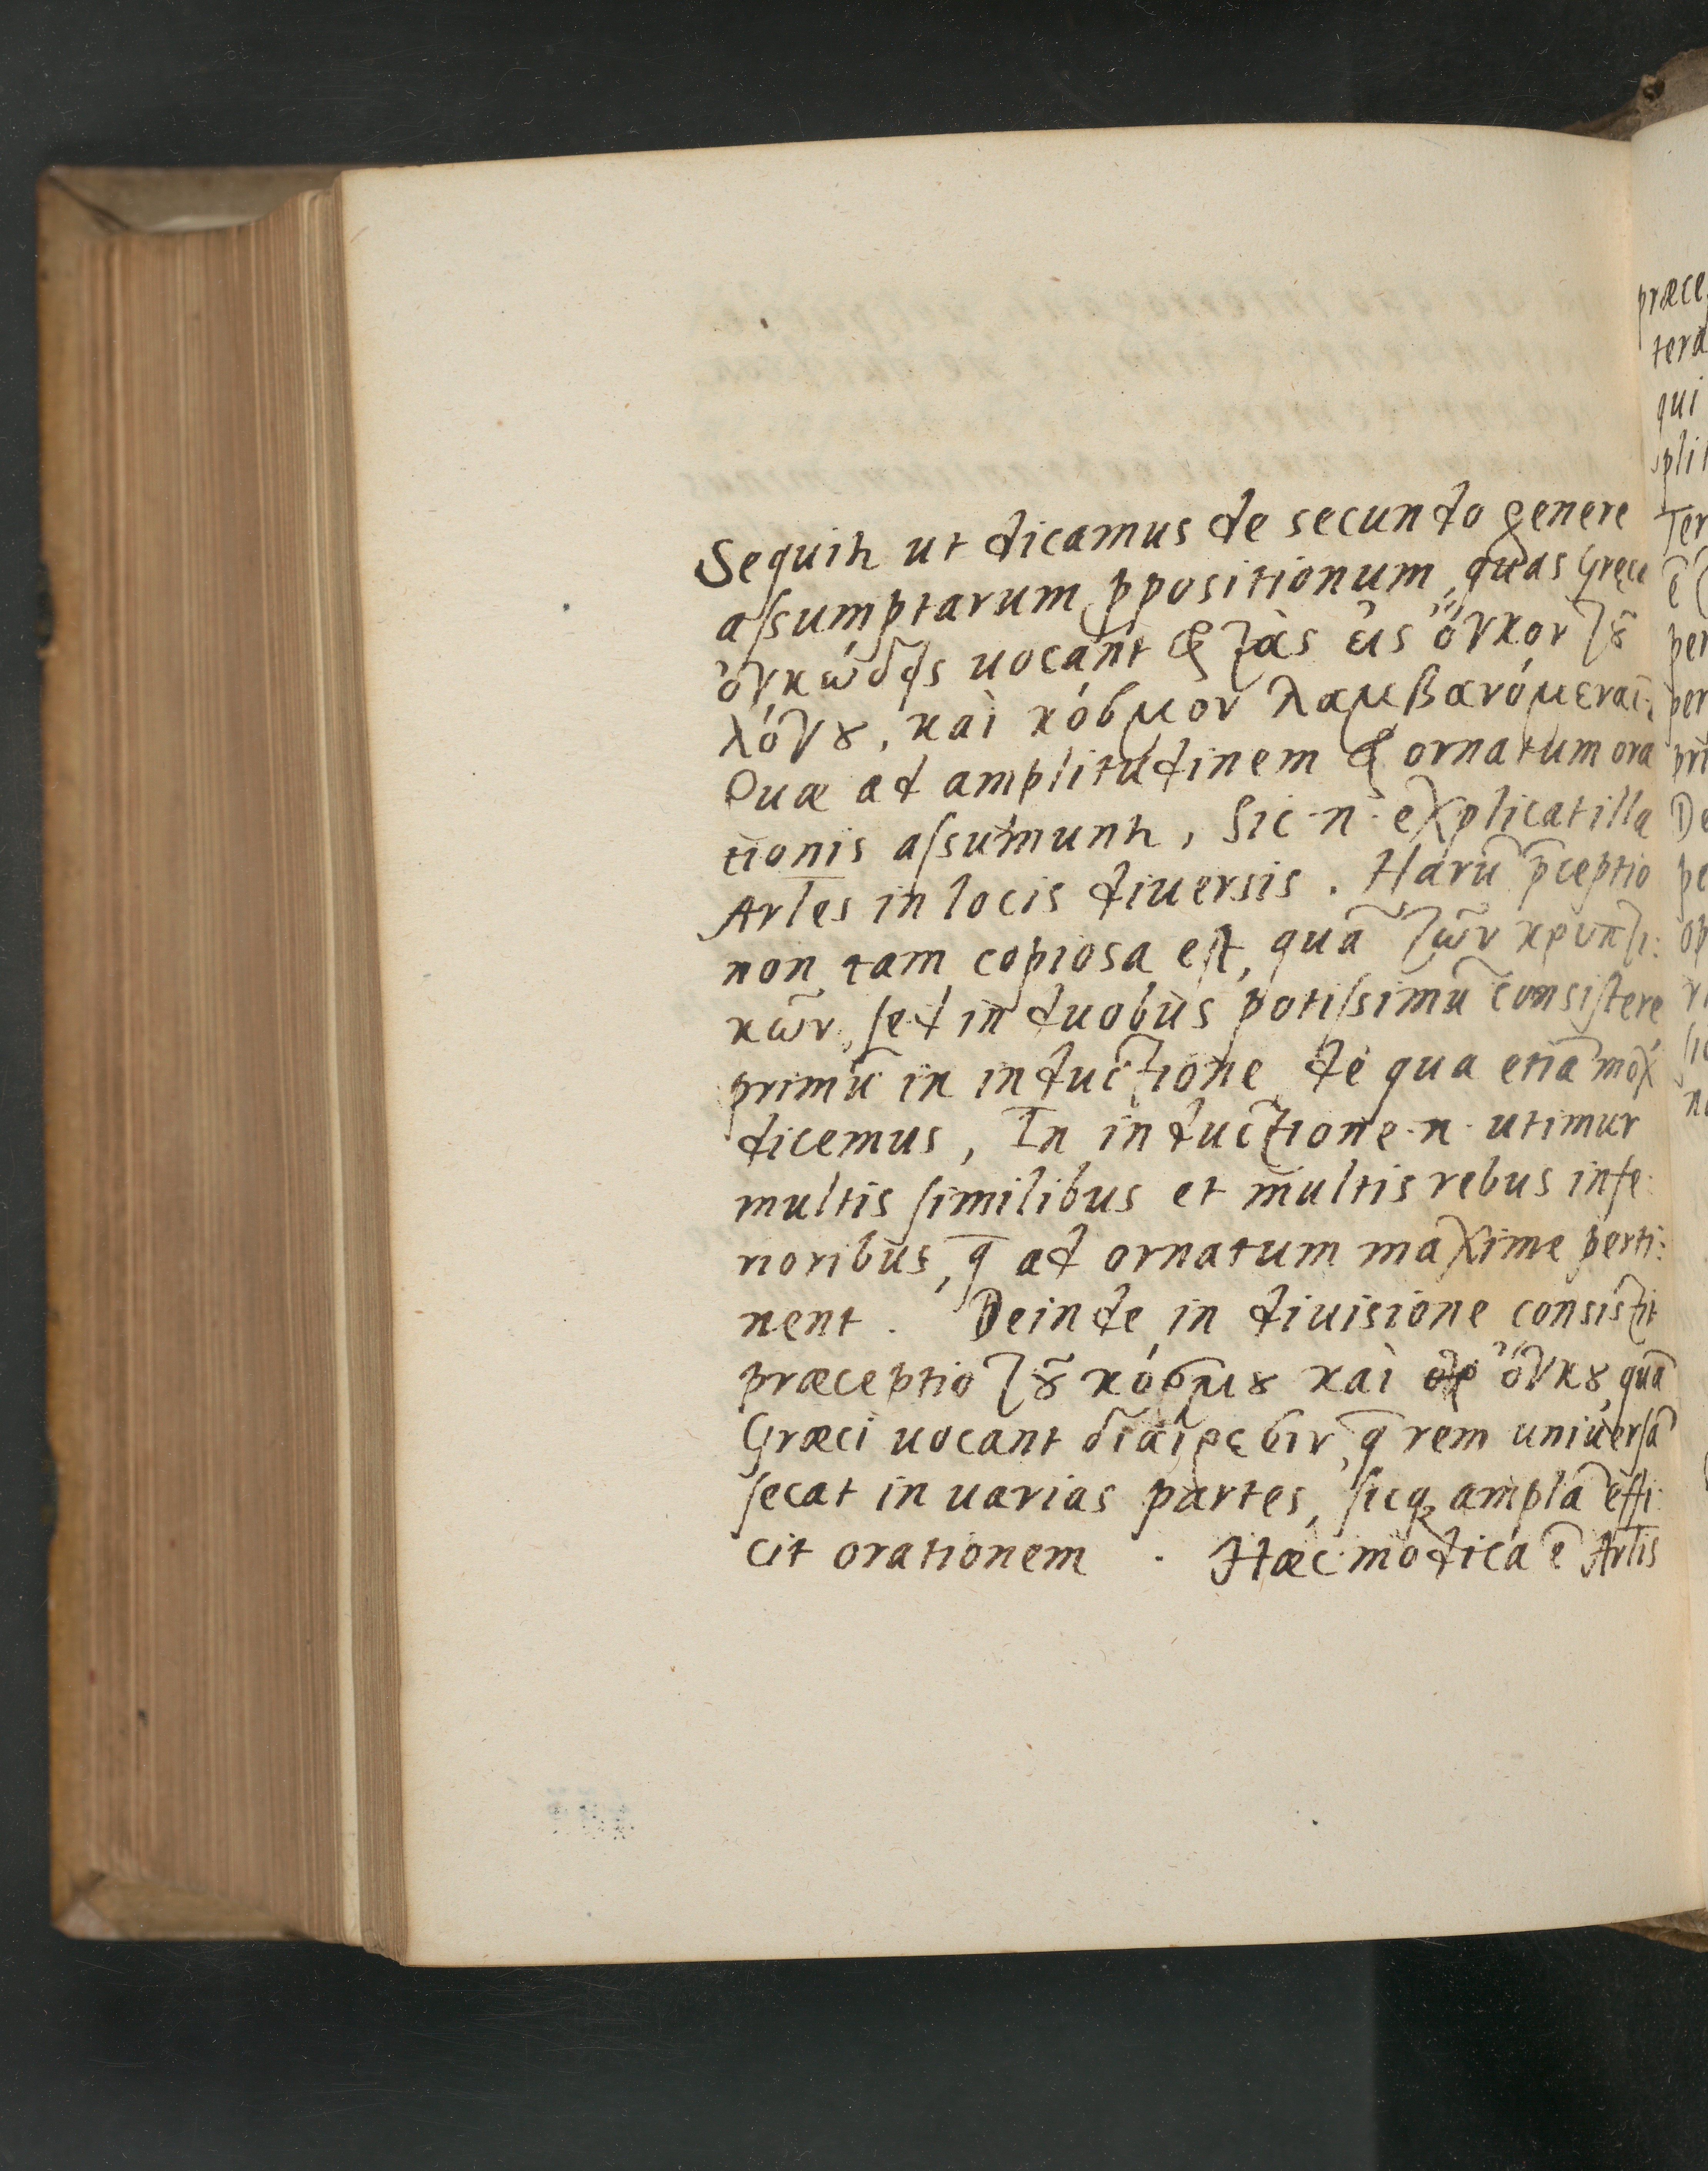 Sequitꝛ ut dicamus de secundo genere
aſsumptarum ꝓpositionum, quas Gręce
ὀγκώδης uocant & τὰς εἰς ὄγκον τȣ͂
λόγȣ, καὶ κόσμον λαμβανόμεναι.
Quæ ad amplitudinem & ornatum ora
tionis aſsumuntꝛ, Sic·n· explicat illa
Arles in locis diuersis. Harũ p̄ceptio
non tam copiosa eſt, quã τῶν κρυπτι:
κῶν, ſed in duobus potiſsimũ conſiſtere
primũ in inductione, de qua etiã mox
dicemus, In inductione·n· utimur
multis ſimilibus et multis rebus infe
rioribus, q̄ ad ornatum maxime perti:
nent. Deinde in diuisione consistit
præceptio τȣ͂ κόσμȣ καὶ ὄγκȣ, quã
Græci uocant διαίρεσιν, q̄ rem uniuerſã
ſecat in uarias partes, ſicqꝫ amplã effi
cit orationem. Hæc modica ē Arlis
præce
tera
qui
pli
Ter
ē
per
per
pri
De
pe
op